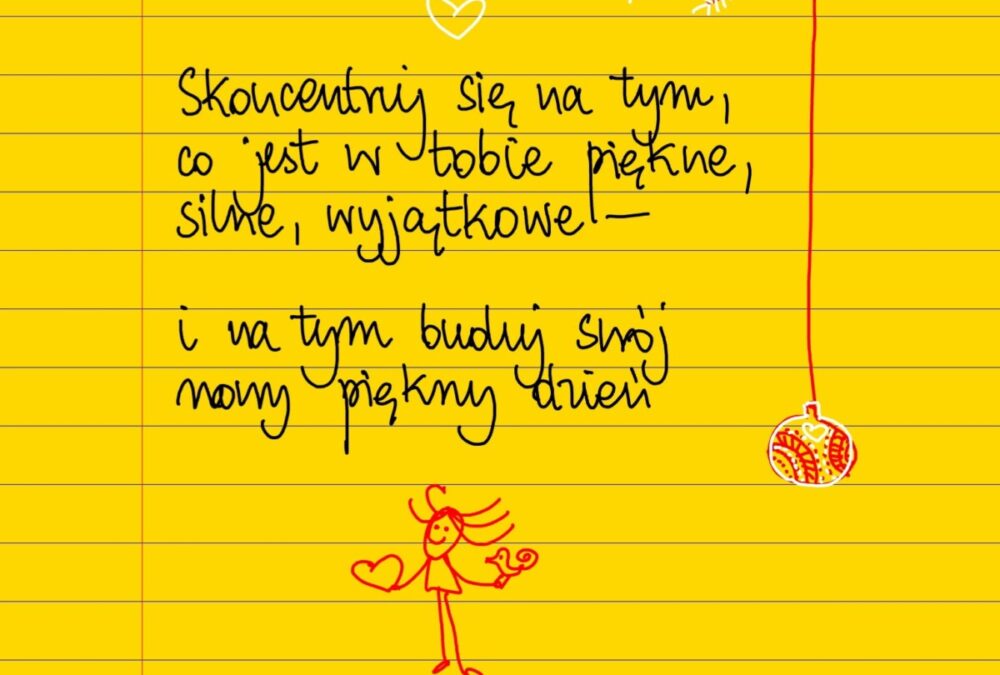 Skoncentruj się na tym,
co jest w tobie piękne,
silne, wyjątkowe –
i na tym buduj swój
nowy piękny dzień